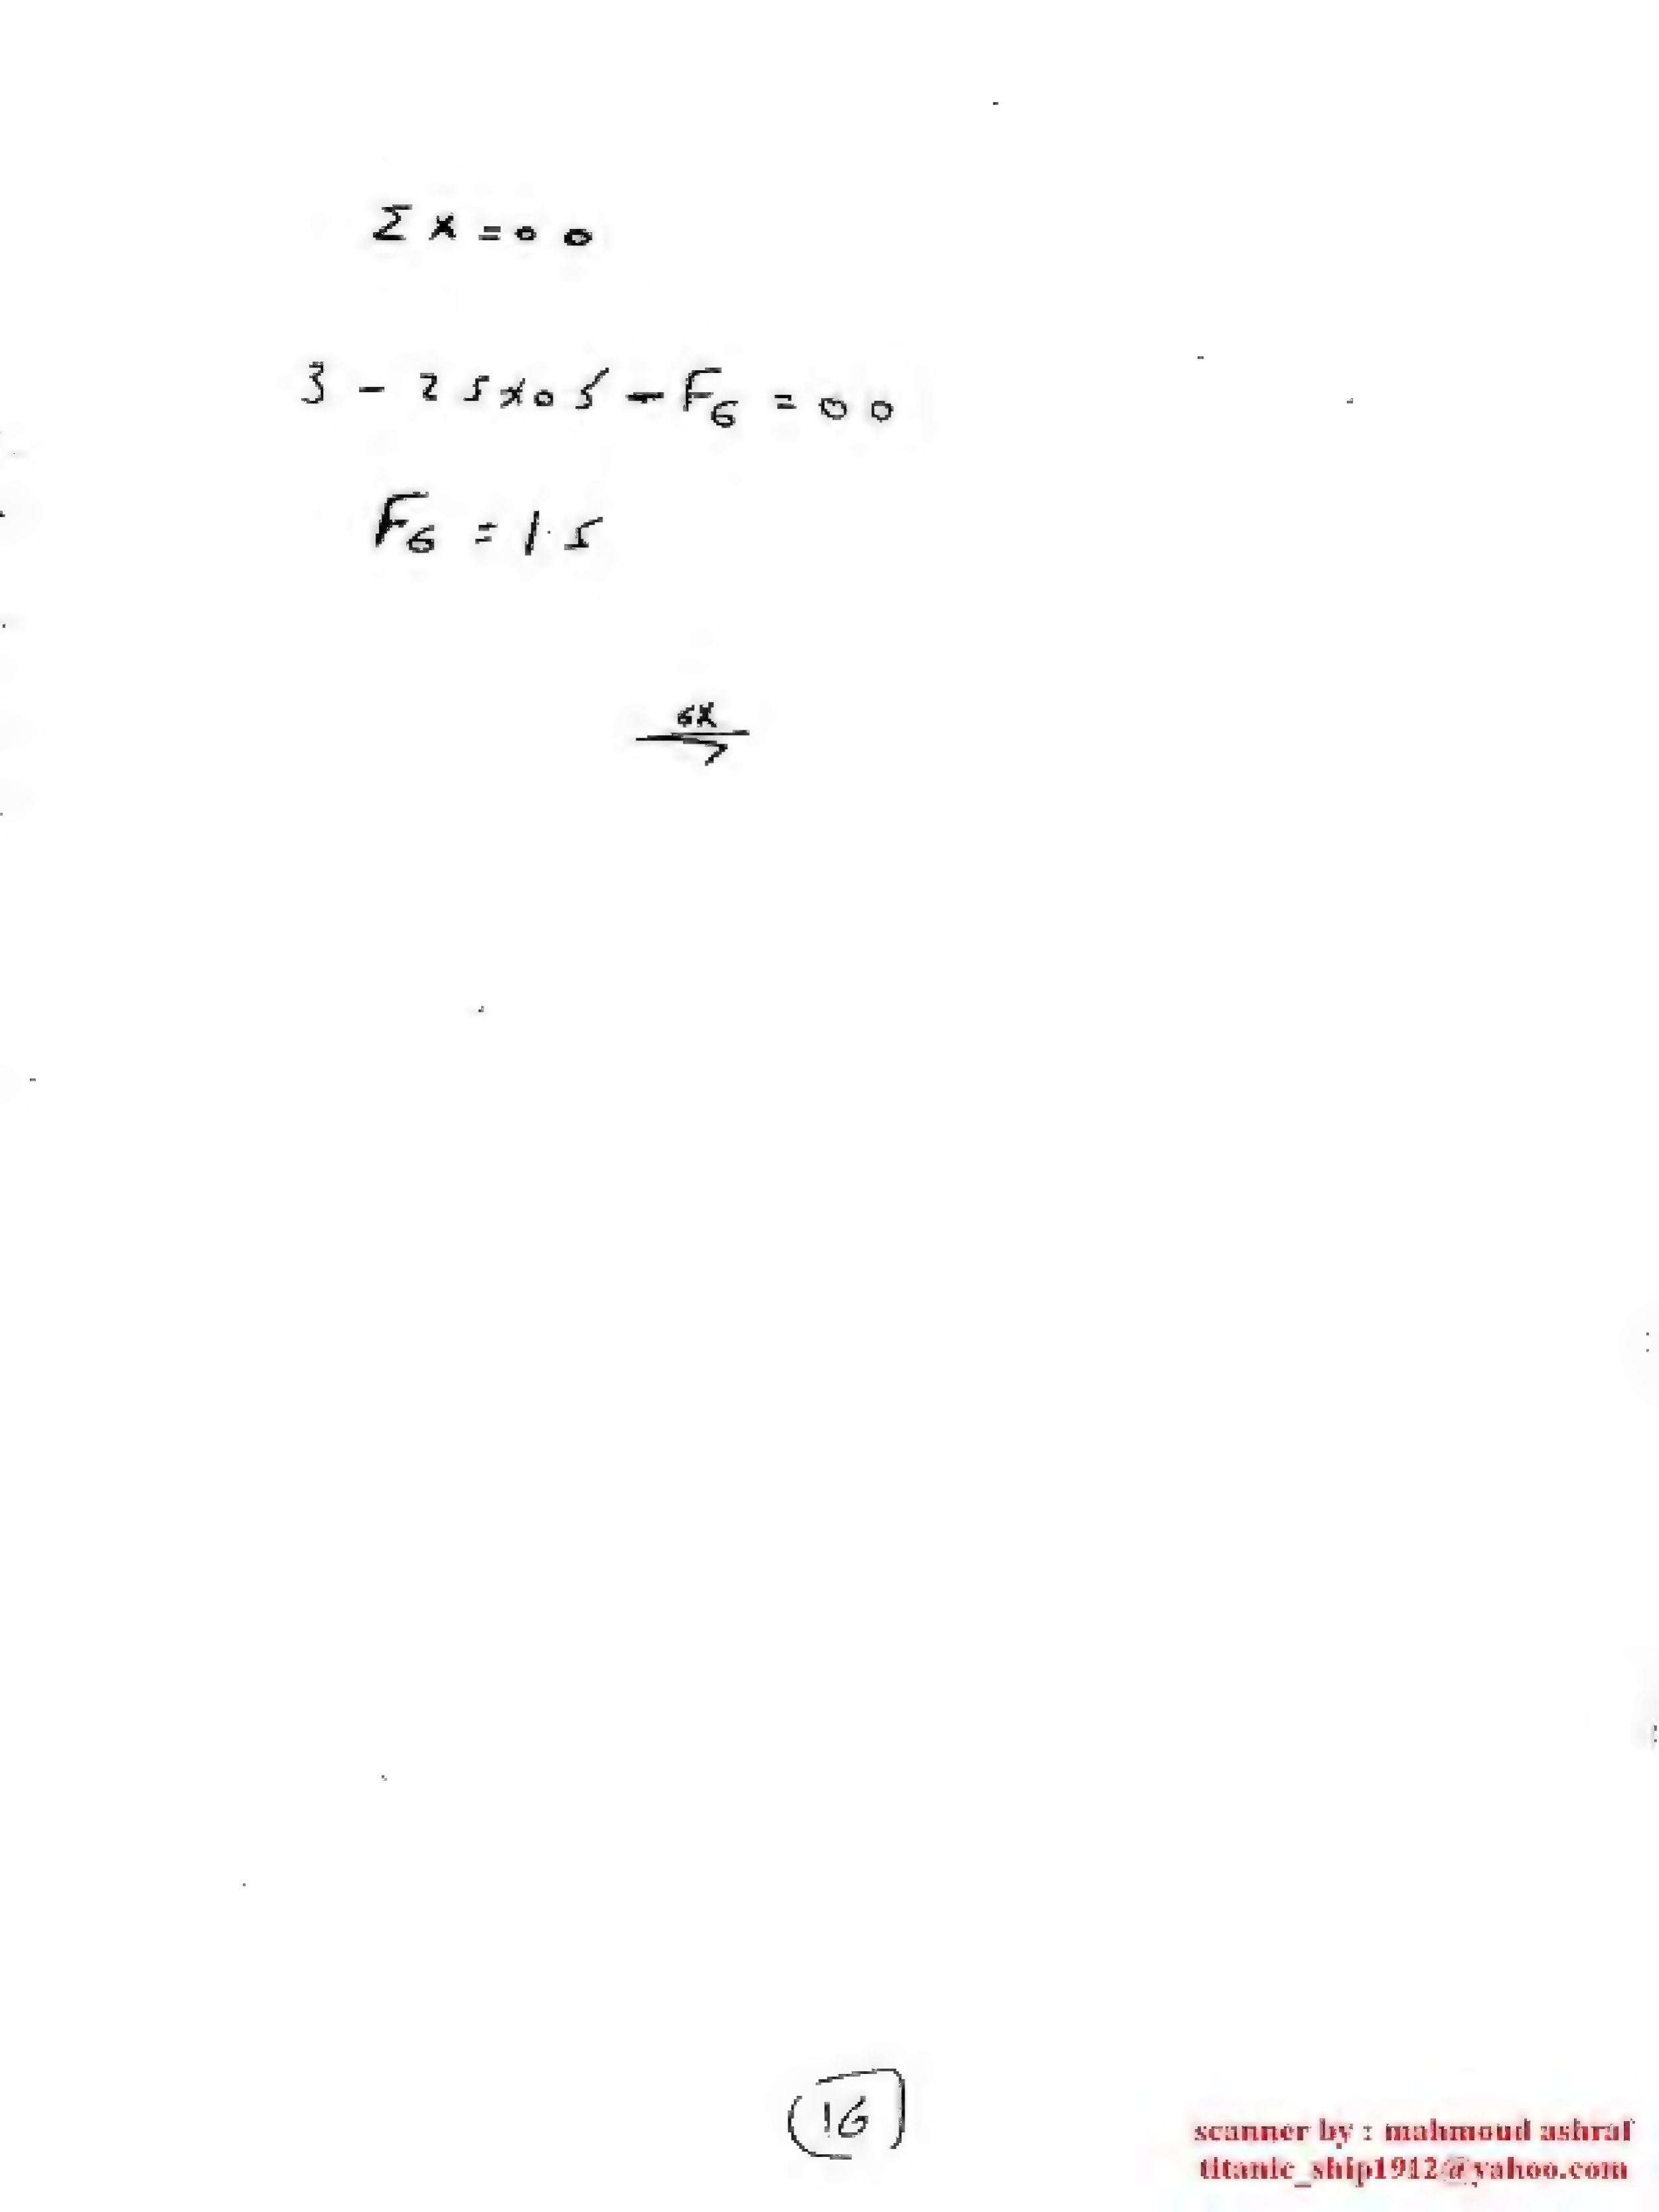 Σ X = 0 0
3 - 2 5 x 0 5 - F6 = 0 0
F6 = 1.5
6X
16
scanner by : mahmoud ashraf
titanic_ship1912@yahoo.com